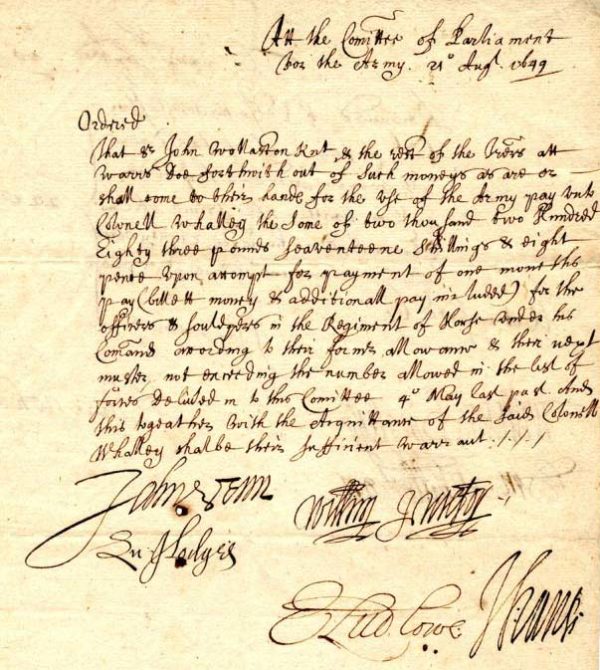 Att the Comittee of Parliament
for the Army. 21º Augt 1649
Ordered
That Sr John Wollaston Knt & the rest of the Trērs att
warrs doe forthwith out of such moneys as are or
shall come to their hands for the use of the Army pay unto
Colonell Whalley the some of two thousand two hundred
Eighty three pounds seaventeene shillings & eight
pence upon accompt for payment of one moneths
pay (billett money & additionall pay included) for the
officers & souldyers in the Regiment of Horse under his
Comand according to their former allowance & their next
muster not exceeding the number allowed in the list of
forces delivered in to this Comittee 4º May last past And
this togeather with the Acquittance of the said Colonell
Whalley shalbe their sufficient warrant . / . / . /
John Venn
Ludlowe